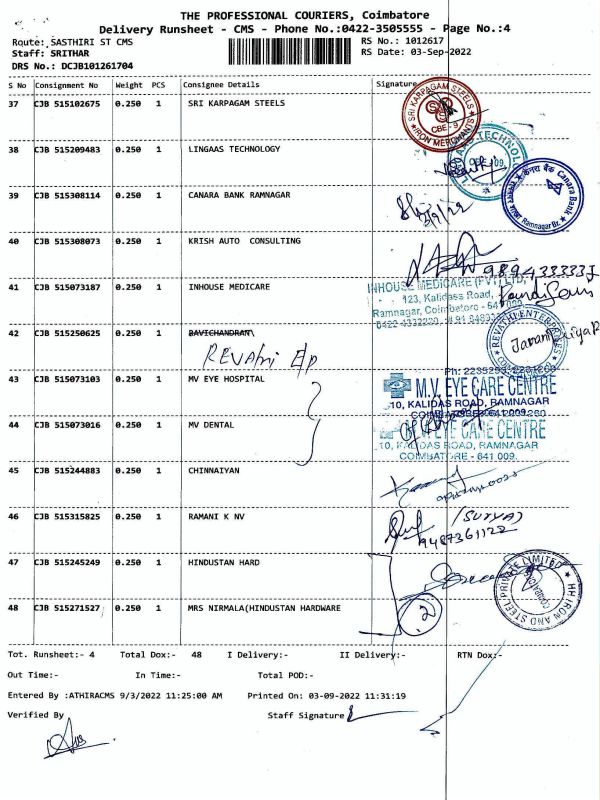 THE PROFESSIONAL COURIERS, Coimbatore
Delivery Runsheet - CMS - Phone No.:0422-3505555 - Page No.:4
Route: SASTHIRI ST CMS
RS No.: 1012617
Staff: SRITHAR
RS Date: 03-Sep-2022
DRS No.: DCJB101261704
S No Consignment No Weight PCS Consignee Details Signature
37 CJB 515102675 0.250 1 SRI KARPAGAM STEELS
SRI KARPAGAM STEELS
IRON MERCHANTS
CBE - 9
38 CJB 515209483 0.250 1 LINGAAS TECHNOLOGY
39 CJB 515308114 0.250 1 CANARA BANK RAMNAGAR
केनरा बैंक Canara Bank
Ramnagar Br.
3/9/22
40 CJB 515308073 0.250 1 KRISH AUTO CONSULTING
41 CJB 515073187 0.250 1 INHOUSE MEDICARE
INHOUSE MEDICARE (PVT) LTD
123, Kalidass Road,
Ramnagar, Coimbatore - 641
42 CJB 515250625 0.250 1 RAVICHANDRAN\
REVathi E/p
REVATHI ENTERPRISES
43 CJB 515073103 0.250 1 MV EYE HOSPITAL
M.V. EYE CARE CENTRE
10, KALIDAS ROAD, RAMNAGAR
44 CJB 515073016 0.250 1 MV DENTAL
M.V. EYE CARE CENTRE
10, KALIDAS ROAD, RAMNAGAR
COIMBATORE - 641 009.
45 CJB 515244883 0.250 1 CHINNAIYAN
46 CJB 515315825 0.250 1 RAMANI K NV
(SURYA)
9487361122
47 CJB 515245249 0.250 1 HINDUSTAN HARD
HH IRON AND STEEL PRIVATE LIMITED
48 CJB 515271527 0.250 1 MRS NIRMALA(HINDUSTAN HARDWARE
2
Tot. Runsheet:- 4 Total Dox:- 48 I Delivery:- II Delivery:- RTN Dox:-
Out Time:- In Time:- Total POD:-
Entered By :ATHIRACMS 9/3/2022 11:25:00 AM Printed On: 03-09-2022 11:31:19
Verified By Staff Signature